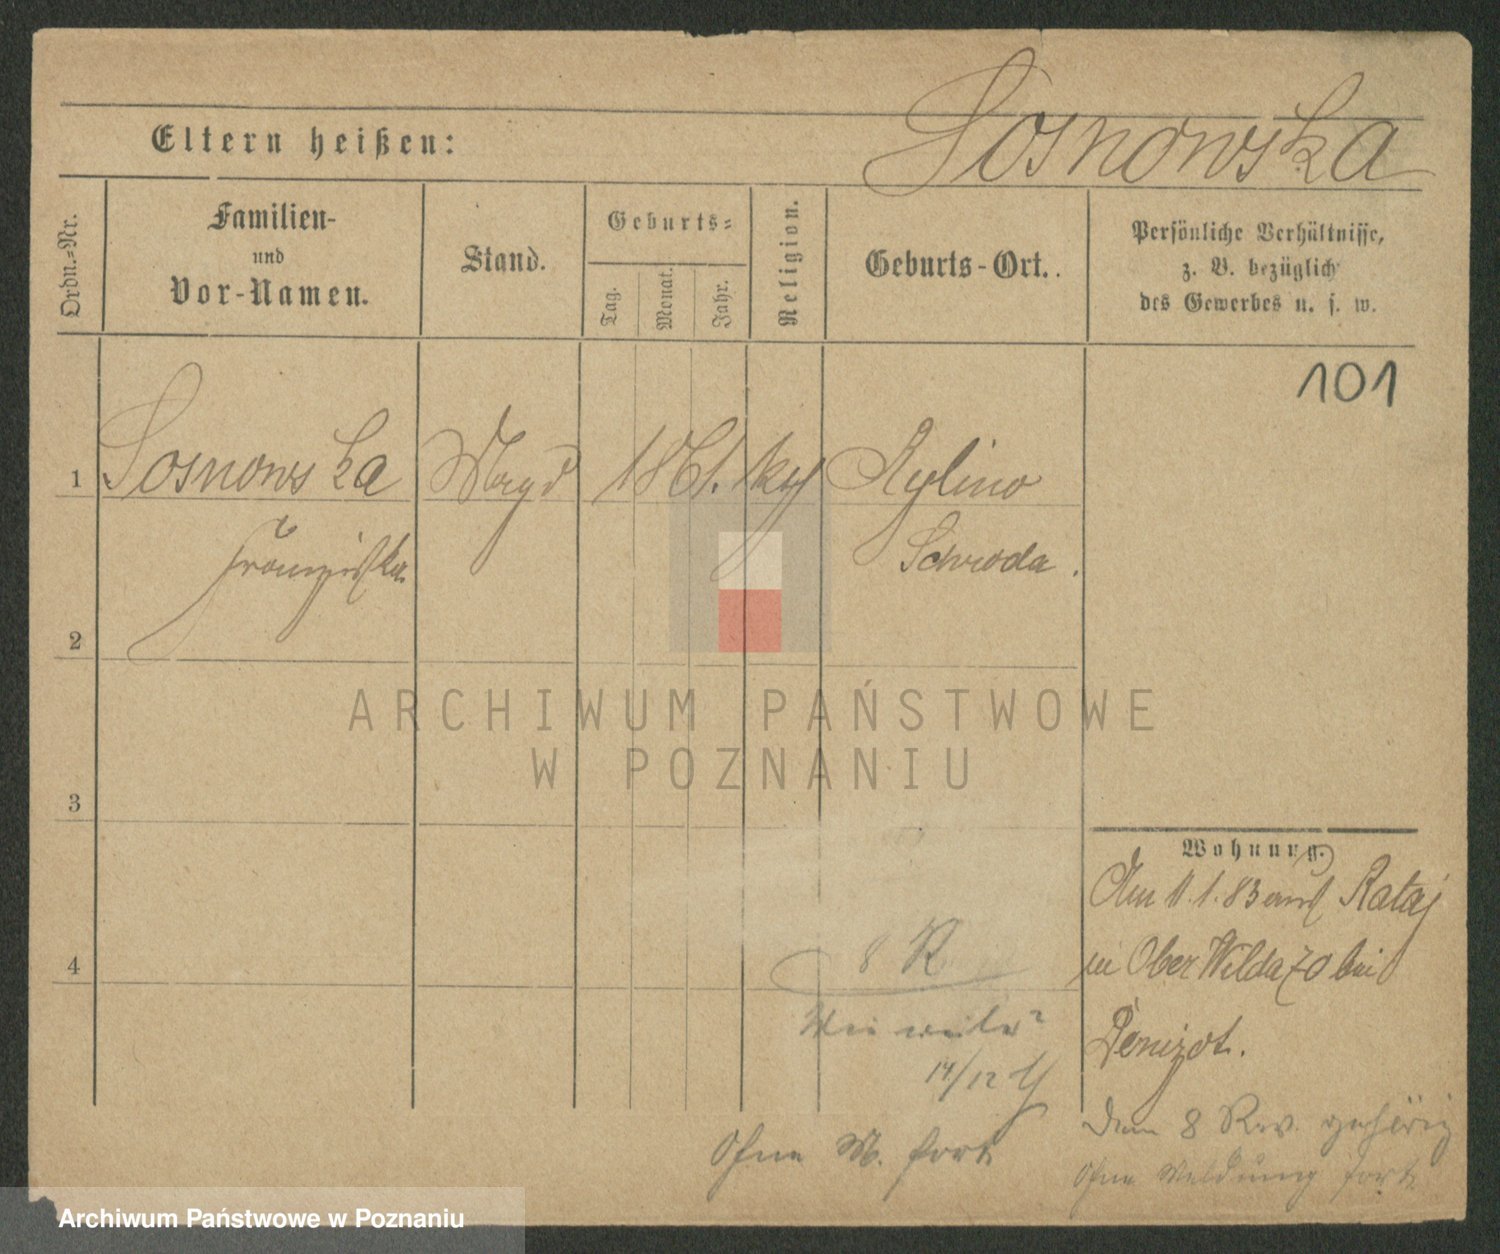 Sosnowska
Eltern heißen:
Ordn.-Nr.
Familien-
und
Vor-Namen.
Stand.
Geburts-
Tag.
Monat.
Jahr.
Religion.
Geburts-Ort.
Persönliche Verhältnisse,
z. B. bezüglich
des Gewerbes u. s. w.
101
1 Sosnowska Magd 1861. kg
Franziska
Schroda.
2
ARCHIWUM PAŃSTWOWE
W POZNANIU
3
Wohnung.
Am 11.1.83 aus Rataj
in Ober Wilda 70 bei
Denizot.
4
8 R
Wie weiter?
14/12
Ohne M. fort
Dem 8 Rev. gehörig
Ohne Meldung fort.
Archiwum Państwowe w Poznaniu